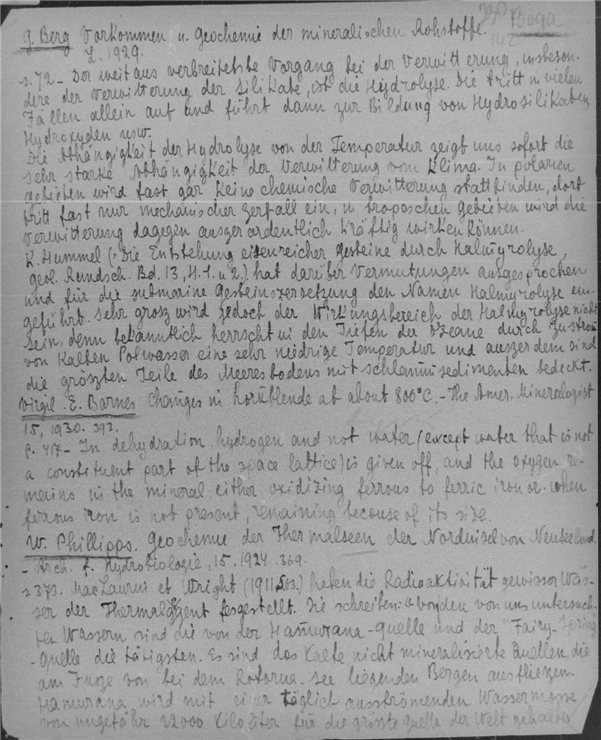 Boga
G. Berg Vorkommen u. Geochemie der mineralischen Rohstoffe.
L. 1929.
s. 72 – Der weitaus verbreitetste Vorgang bei der Verwitterung, insbeson-
dere der Verwitterung der Silikate, ist die Hydrolyse. Die tritt in vielen
Fällen allein auf und führt dann zur Bildung von Hydrosilikaten,
Hydroxyden usw.
Die Abhängigkeit der Hydrolyse von der Temperatur zeigt uns sofort die
sehr starke Abhängigkeit der Verwitterung vom Klima. In polaren
gebieten wird fast gar keine chemische Verwitterung stattfinden, dort
tritt fast nur mechanischer Zerfall ein, in tropischen gebieten wird die
Verwitterung dagegen auszerordentlich kräftig wirken können.
K. Hummel (: Die Entstehung eisenreicher gesteine durch Halmyrolyse,
geol. Rundsch. Bd. 13, H. 1. u 2.) hat darüber Vermutungen ausgesprochen
und für die submarine gesteinszersetzung den Namen Halmyrolyse ein-
geführt. Sehr grosz wird jedoch der Wirkungsbereich der Halmyrolyse nicht
sein, denn bekanntlich herrscht in den Tiefen der Ozeane durch Zustrom
von kalten Polwasser eine sehr niedrige Temperatur und auszerdem sind
die gröszten Teile des Meeresbodens mit schlammsedimenten bedeckt.
Virgil. E. Barnes Changes in hornblende at about 800°C. – The Amer. Mineralogist
15, 1930. 393.
p. 417 – In dehydration, hydrogen and not water (except water that is not
a constituent part of the space lattice) is given off, and the oxygen re-
mains in the mineral either oxidizing ferrous to ferric iron or when
ferrous iron is not present, remaining because of its size.
W. Phillipps. Geochemie der Thermalseen der Nordinsel von Neuseeland
– Arch. f. Hydrobiologie, 15. 1924. 369.
s 373. MacLaurin et Wright (1911) haben die Radioaktivität gewisser Wäs-
ser der festgestellt. Sie schreiben: von den von uns untersuch-
ten Wassern sind die von der Hamurana-Quelle und der "Fairy-Spring
-Quelle die tätigsten. Es sind das kalte nicht mineralisierte Quellen, die
am Fusze von bei dem Rotorua. see liegenden Bergen ausflieszen.
Hamurana wird mit einer täglich ausströmenden Wassermasse
von ungefähr 22000 Kiloliter für die grösste quelle der Welt gehalten